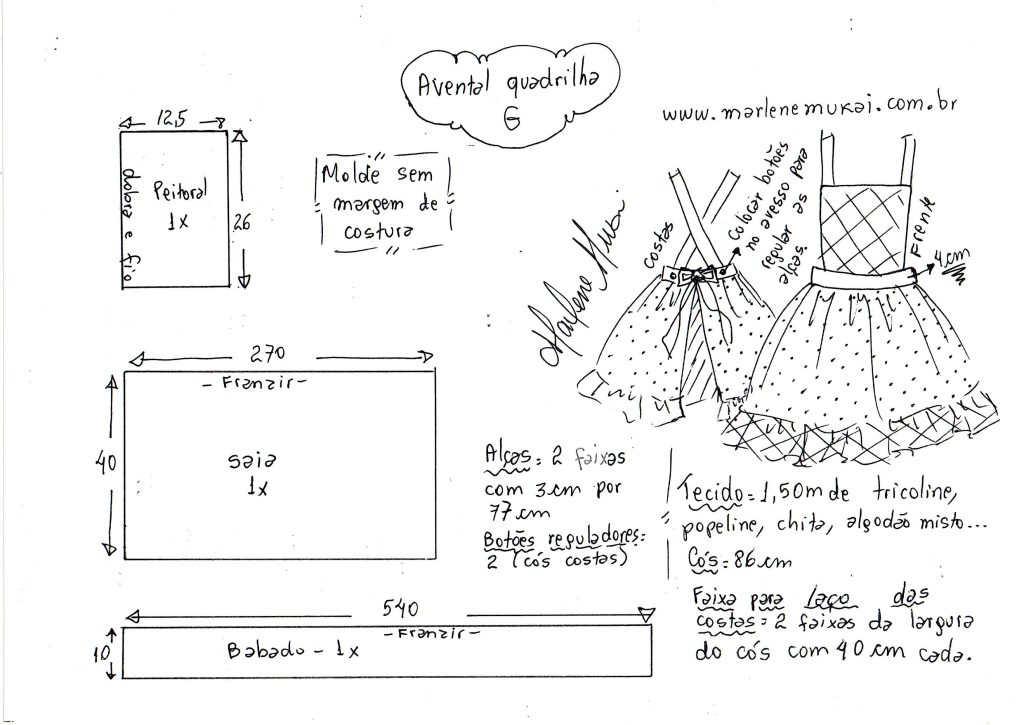 Avental quadrilha
G
www.marlenemukai.com.br
12,5
dobra e fio
Peitoral
1x
26
Molde sem
margem de
costura
Marlene Mukai
costas
colocar botões
no avesso para
regular as
alças.
Frente
4cm
270
- Franzir -
40
saia
1x
Alças = 2 faixas
com 3cm por
77cm
Botões reguladores=
2 (cós costas)
Tecido = 1,50m de tricoline,
popeline, chita, algodão misto...
Cós = 86cm
Faixa para Laço das
costas = 2 faixas da largura
do cós com 40cm cada.
540
- Franzir -
10
Babado - 1x